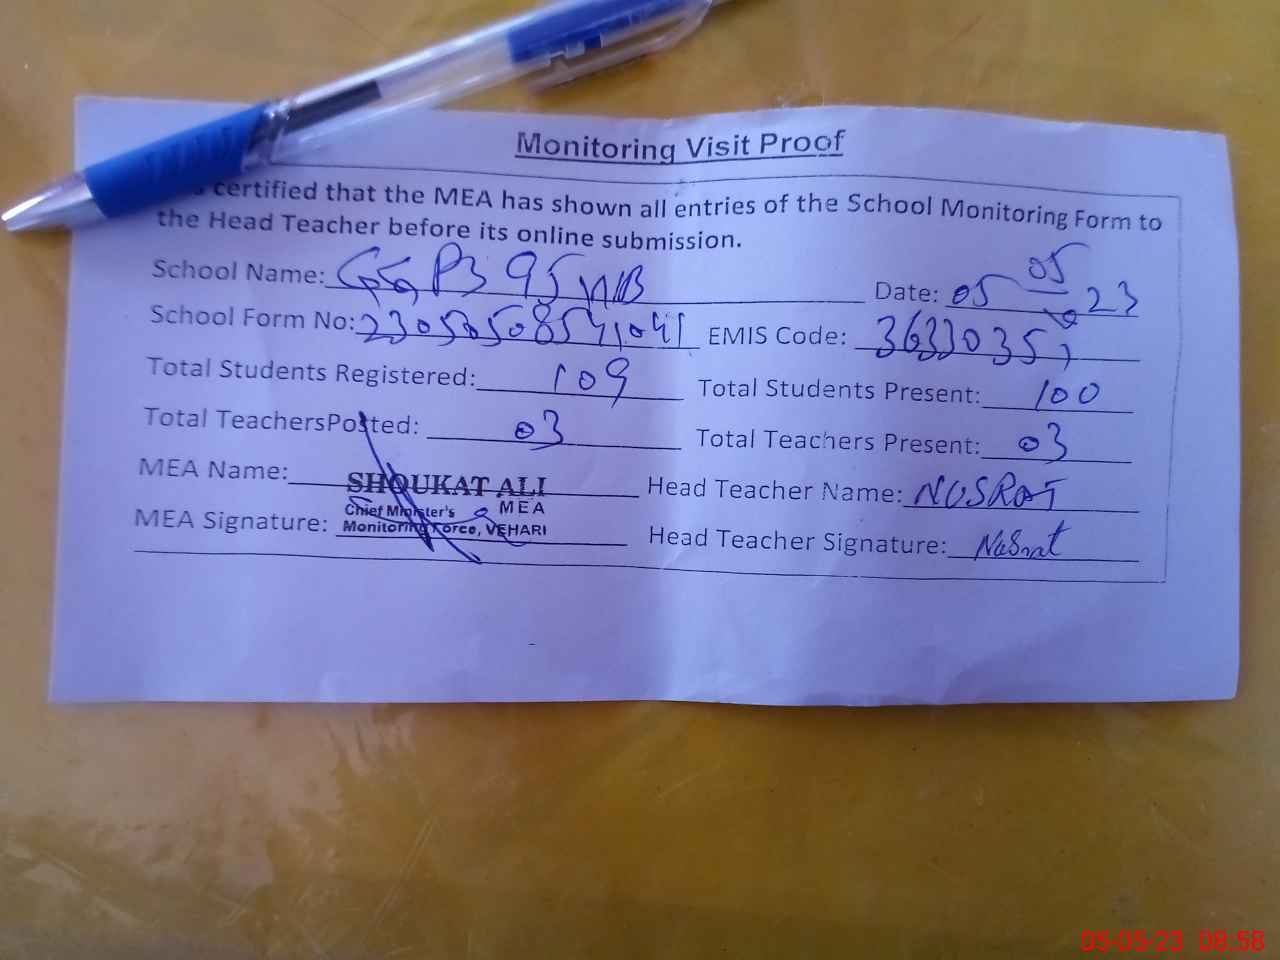 Monitoring Visit Proof
certified that the MEA has shown all entries of the School Monitoring Form to
the Head Teacher before its online submission.
School Name: 95 Date: 05 05 23
School Form No: EMIS Code:
Total Students Registered: 109 Total Students Present: 100
Total TeachersPosted: 03 Total Teachers Present: 03
MEA Name: SHOUKAT ALI Head Teacher Name: NUSRAT
Chief Minister's MEA
MEA Signature: Monitoring Force, VEHARI Head Teacher Signature: Nusrat
05-05-23 08:58